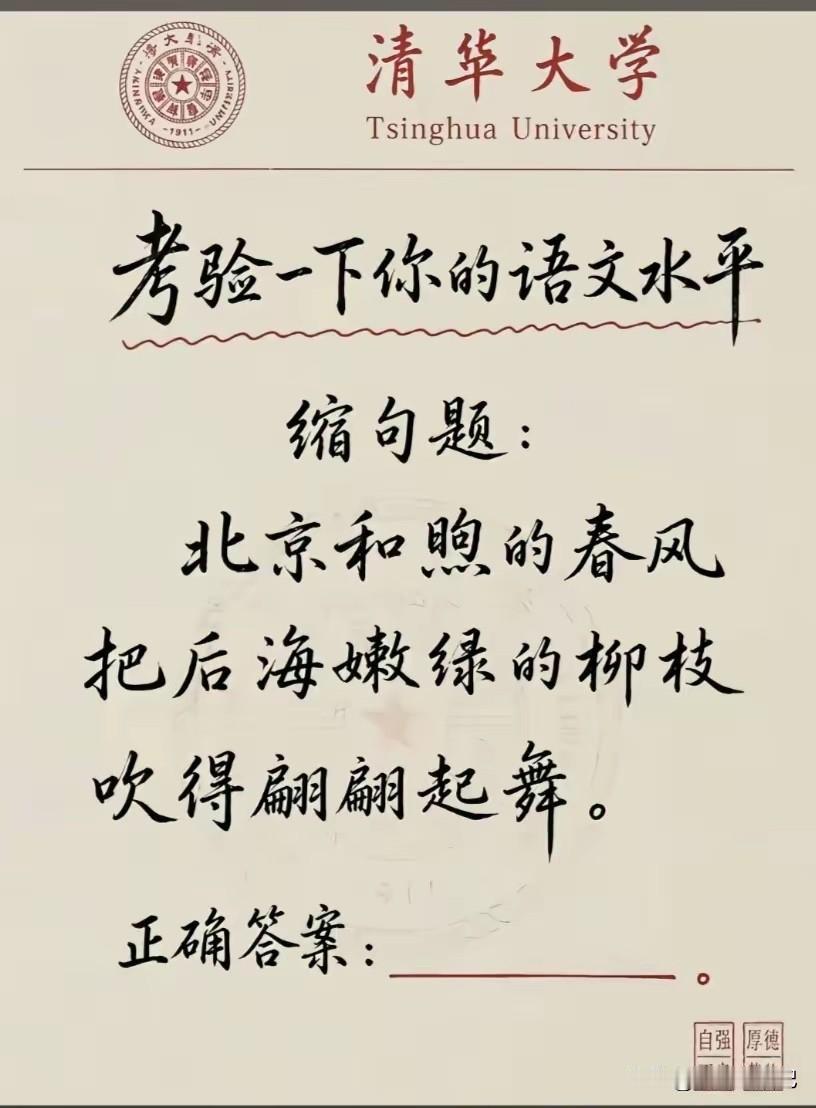 清华大学
Tsinghua University
-1911-
考验一下你的语文水平
缩句题：
北京和煦的春风
把后海嫩绿的柳枝
吹得翩翩起舞。
正确答案：。
自强 厚德